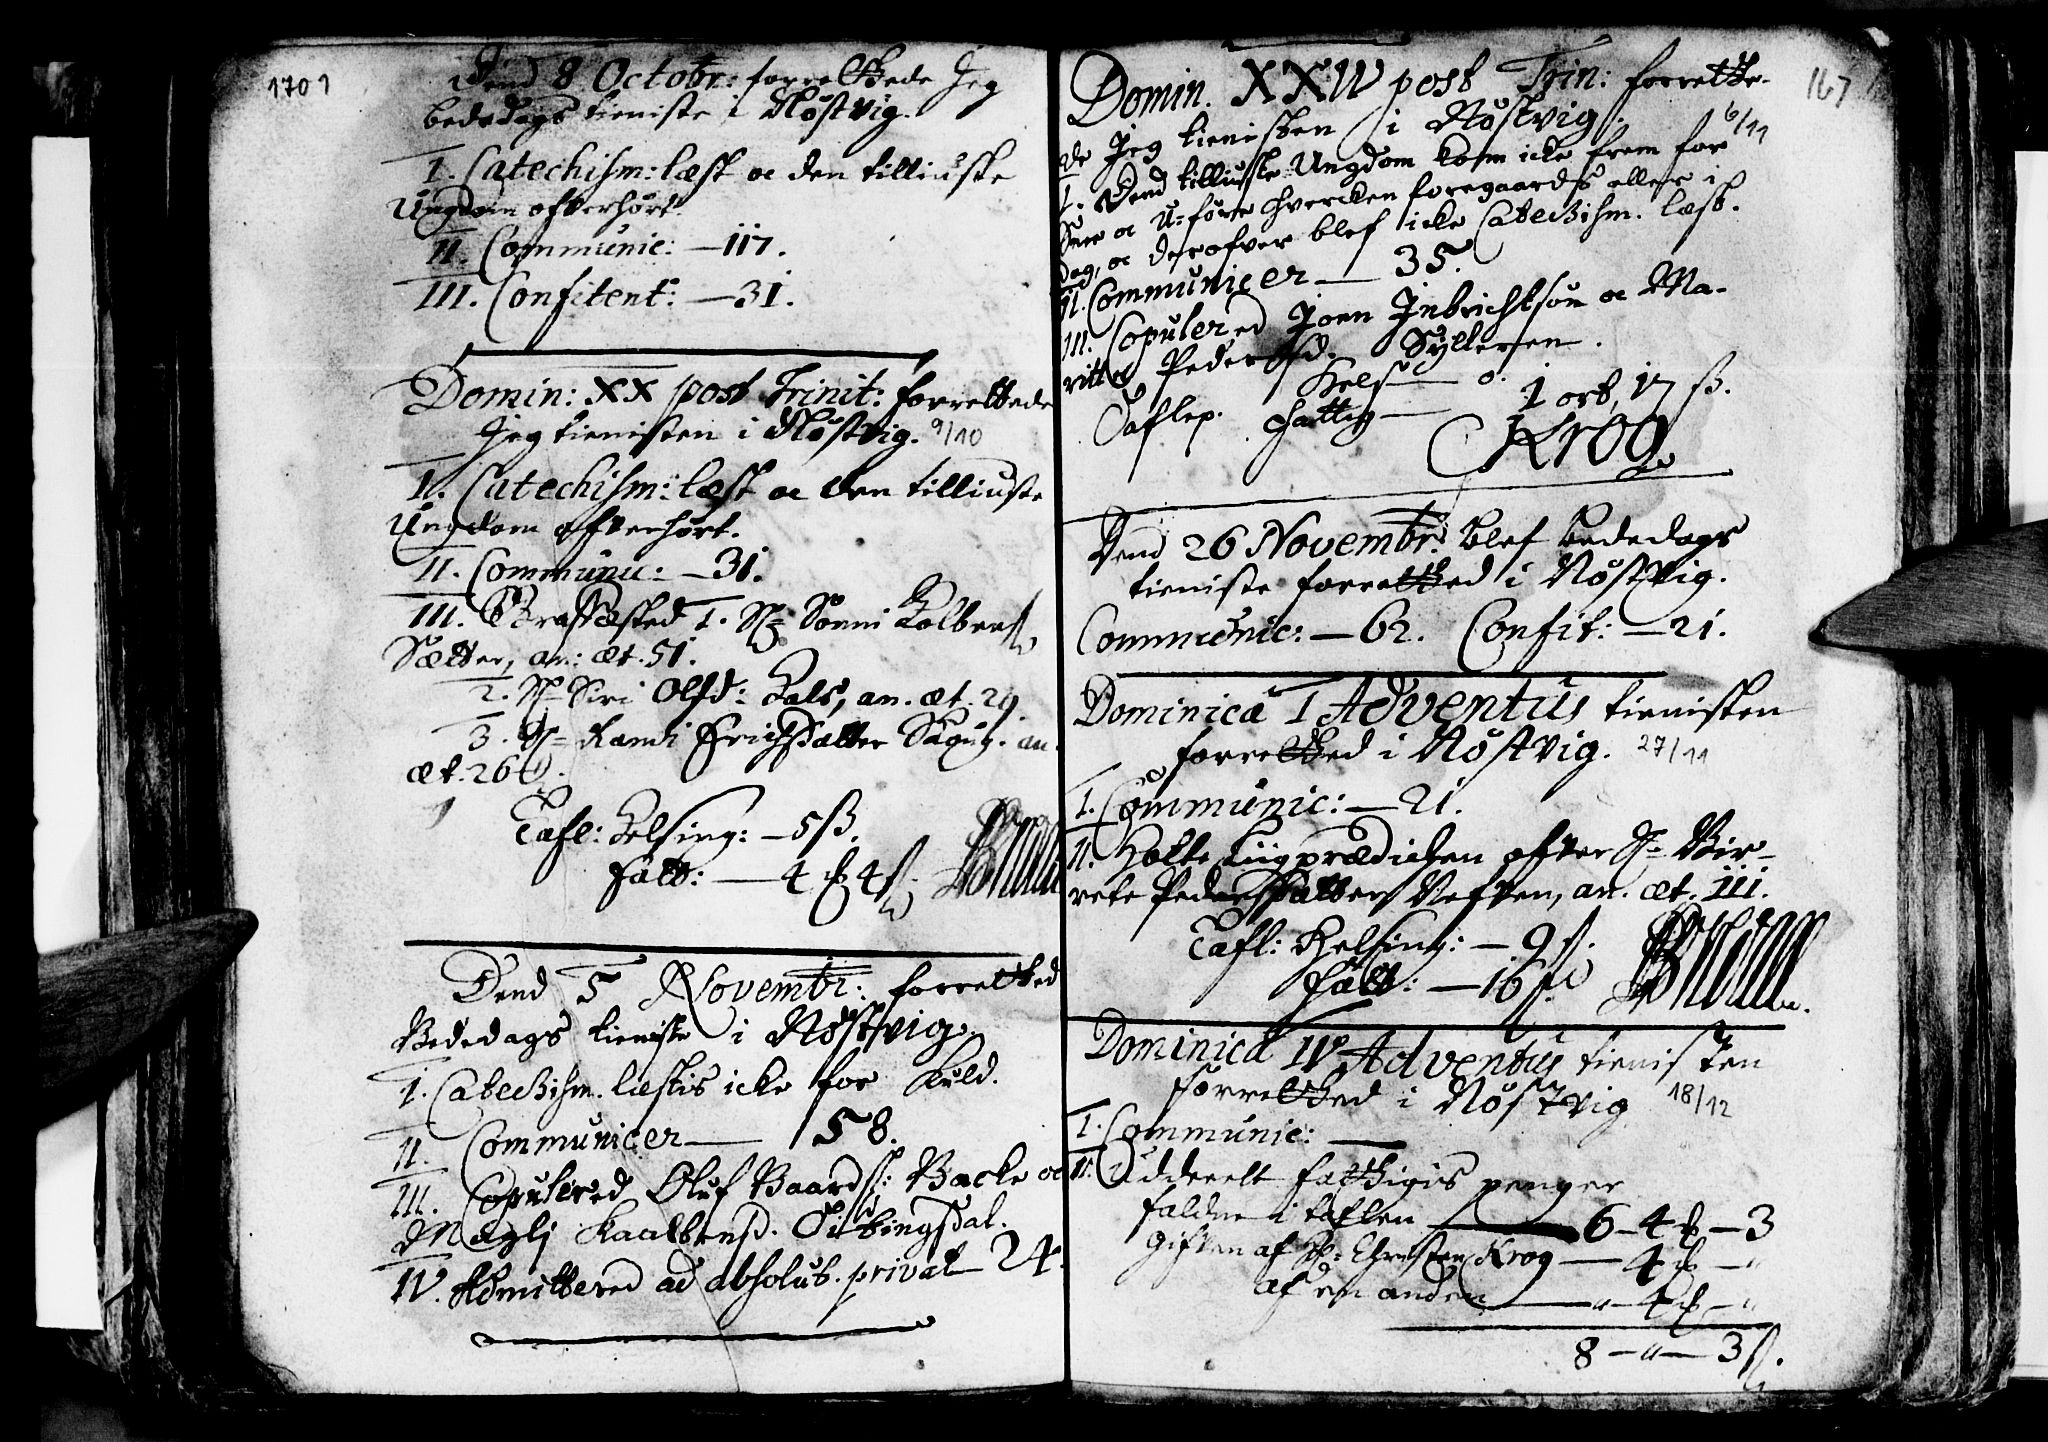 1701
Dend 8 Octobr: forrettede Jeg
bededags tieniste i Nøstvig.
I. Catechism: læst oc den tilliuste
Ungdom ofverhørt.
II. Communic: — 117.
III. Confitent: — 31.
Domin: XX post Trinit: forrettede
Jeg tienisten i Nøstvig. 9/10
I. Catechism: læst oc den tilliuste
Ungdom ofverhørt.
II. Communic: — 31.
III. 1. Sønni
Sætter, an: æt. 51.
2. Siri Olsd: Hals, an. æt. 29.
3. Randi Erichsdatter an.
æt. 26.
Tafl: Helsing: — 5 ß.
Fatt: — 4 4 ß.
Dend 5 Novembr: forretted
Bededags tieniste i Nøstvig.
I. Catechism. læstis icke for Kuld.
II. Communicer — 58.
III. Copulered Oluf Baards: Backe oc
IV. Admittered ad absolut. privat 24.
167
Domin. XXIV post Trin: forrette-
de Jeg tienisten i Nøstvig. 6/11
I. Dend tilliuste Ungdom kom icke frem for
Snee oc u-føre hvercken foregaards eller i
dag, oc derofver blef icke Catechism. læst.
II. Communicer — 35.
III. Copulered Joen Inbrichtsøn oc Ma-
ritte Pedersd. Sylteren.
Taflep. Hels — 0.
Fattig — 1 ort, 17 ß.
Krog
Dend 26 Novembr: blef bededags
tieniste forretted i Nøstvig.
Communic: — 62. Confit: — 21.
Dominica I Adventus tienisten
forretted i Nøstvig. 27/11
I. Communic: — 21.
II. Holte Liigprædichen ofver Bir-
rete Pedersdatter Neften, an. æt. 111.
Tafl: Helsing: — 9 ß.
Fatt: — 16 ß.
Dominica IV Adventus tienisten
forretted i Nøstvig 18/12
I. Communic: —
II. Udderelt fattigis penger
faldne i taflen — 6 — 4 — 3
Giften af Hr: Christen Krog — 4 — "
af en anden — " — 4 — "
8 — " — 3 ß.